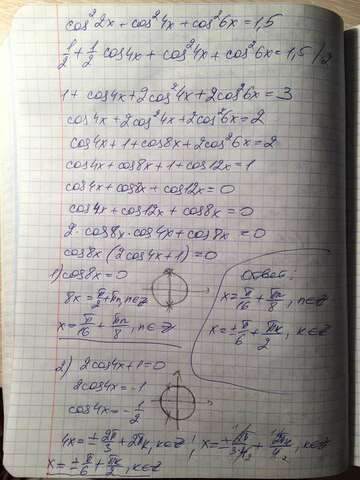 cos²2x + cos²4x + cos²6x = 1,5
1/2 + 1/2 cos4x + cos²4x + cos²6x = 1,5 /2
1 + cos4x + 2cos²4x + 2cos²6x = 3
cos4x + 2cos²4x + 2cos²6x = 2
cos4x + 1 + cos8x + 2cos²6x = 2
cos4x + cos8x + 1 + cos12x = 1
cos4x + cos8x + cos12x = 0
cos4x + cos12x + cos8x = 0
2·cos8x·cos4x + cos8x = 0
cos8x (2cos4x + 1) = 0
1) cos8x = 0
8x = π/2 + πn, n∈Z
x = π/16 + πn/8, n∈Z
2) 2cos4x + 1 = 0
2cos4x = -1
cos4x = -1/2
4x = ± 2π/3 + 2πk, k∈Z
x = ± π/6 + πk/2, k∈Z
Ответ:
x = π/16 + πn/8, n∈Z
x = ± π/6 + πk/2, k∈Z